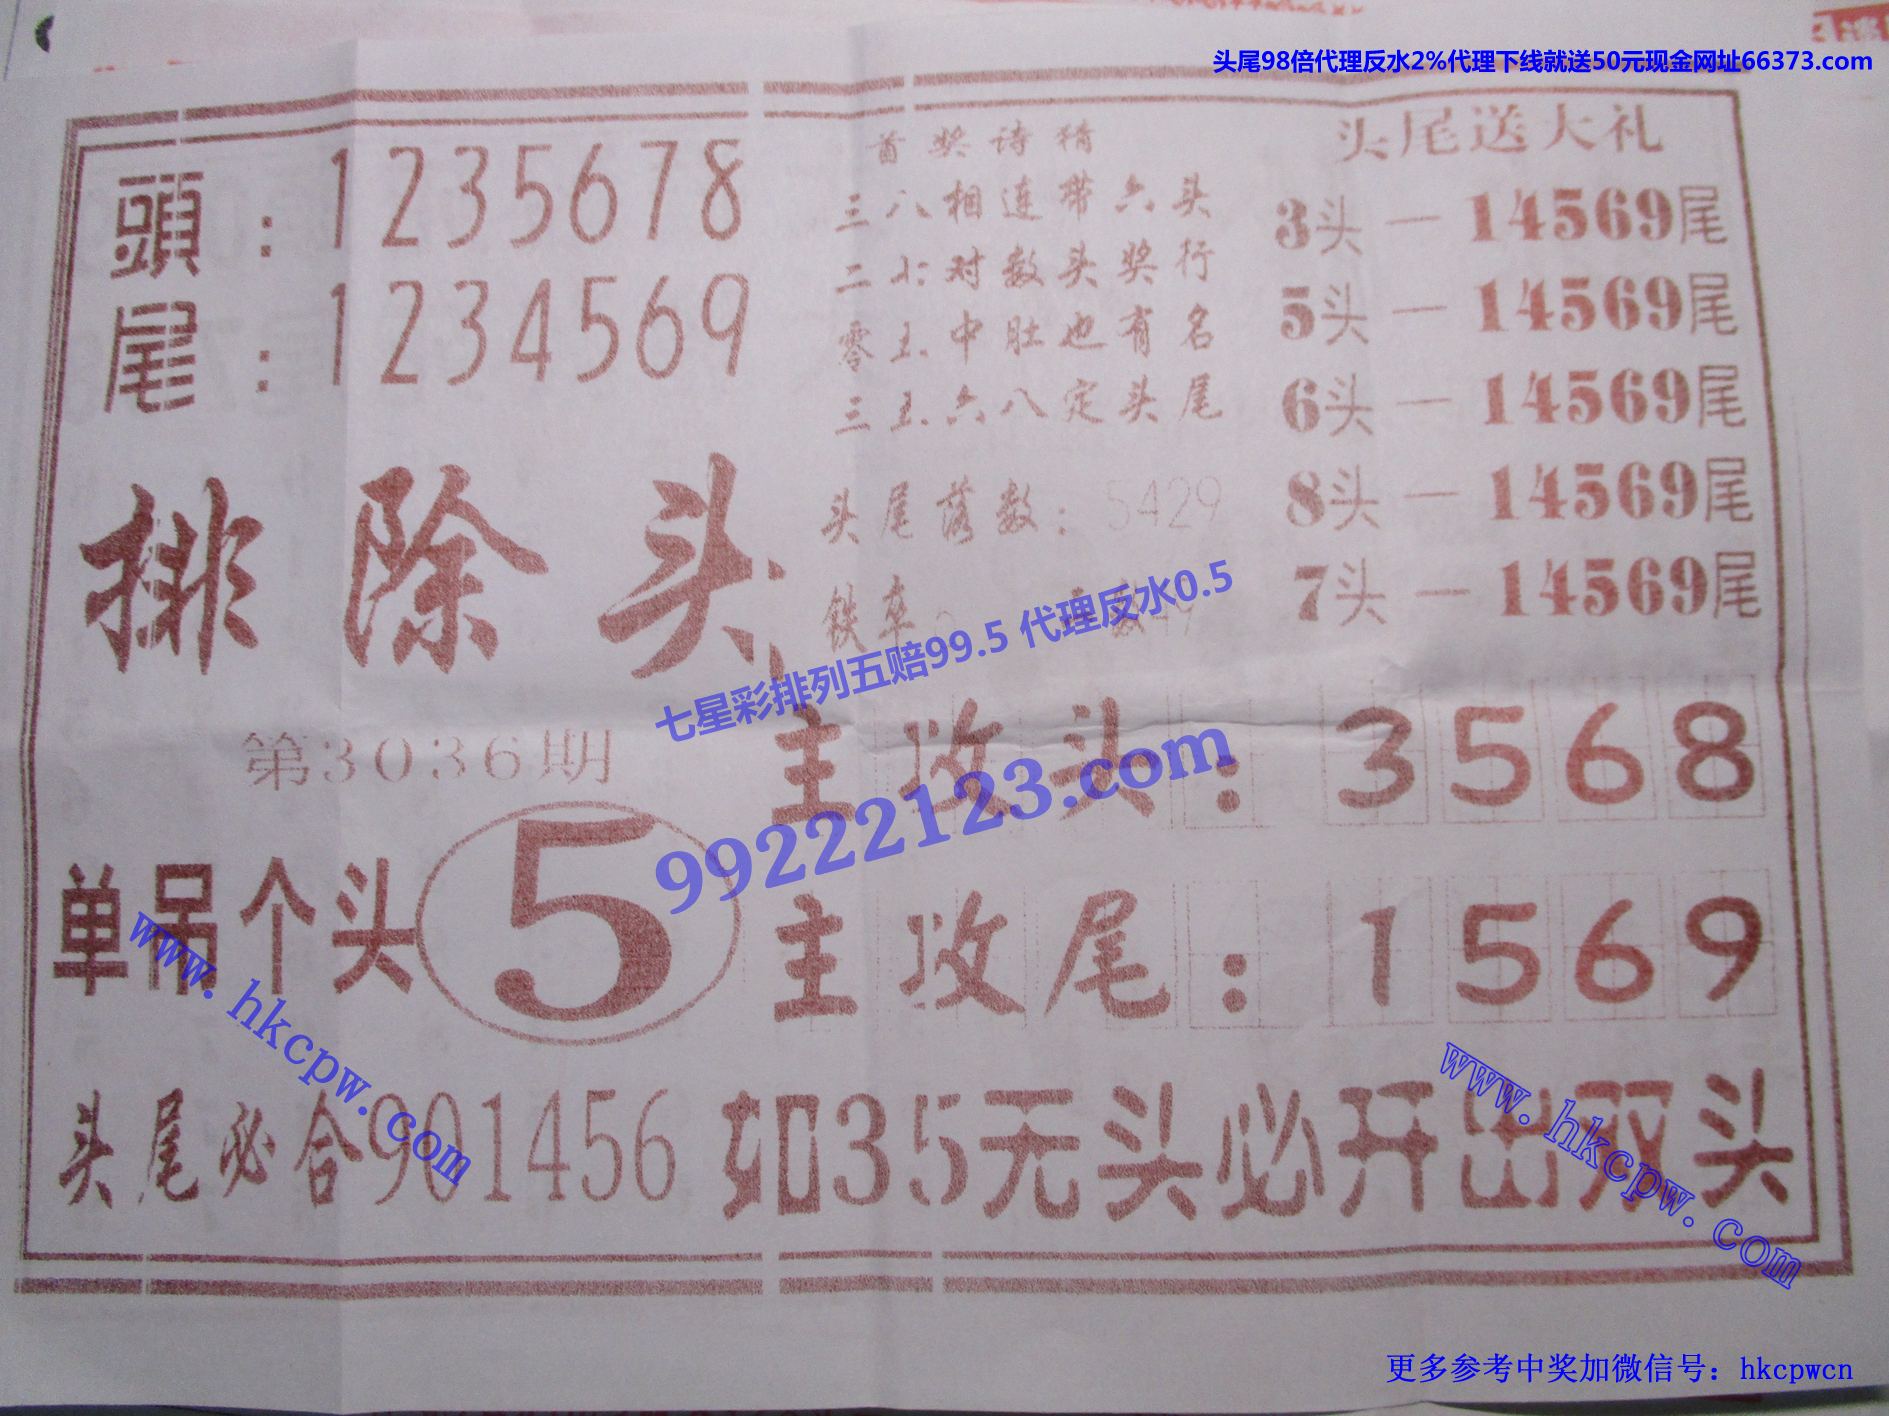 头尾98倍代理反水2%代理下线就送50元现金网址66373.com
頭：1235678
尾：1234569
首奖诗精
三八相连带六头
二七对数头奖行
零五中肚也有名
三五六八定头尾
头尾落数：5429
铁卒
头尾送大礼
3头—14569尾
5头—14569尾
6头—14569尾
8头—14569尾
7头—14569尾
排除头
七星彩排列五赔99.5 代理反水0.5
99222123.com
第3036期
主攻头：3568
单吊个头5
主攻尾：1569
www.hkcpw.com
www.hkcpw.com
头尾必合901456
如35无头必开出双头
更多参考中奖加微信号：hkcpwcn